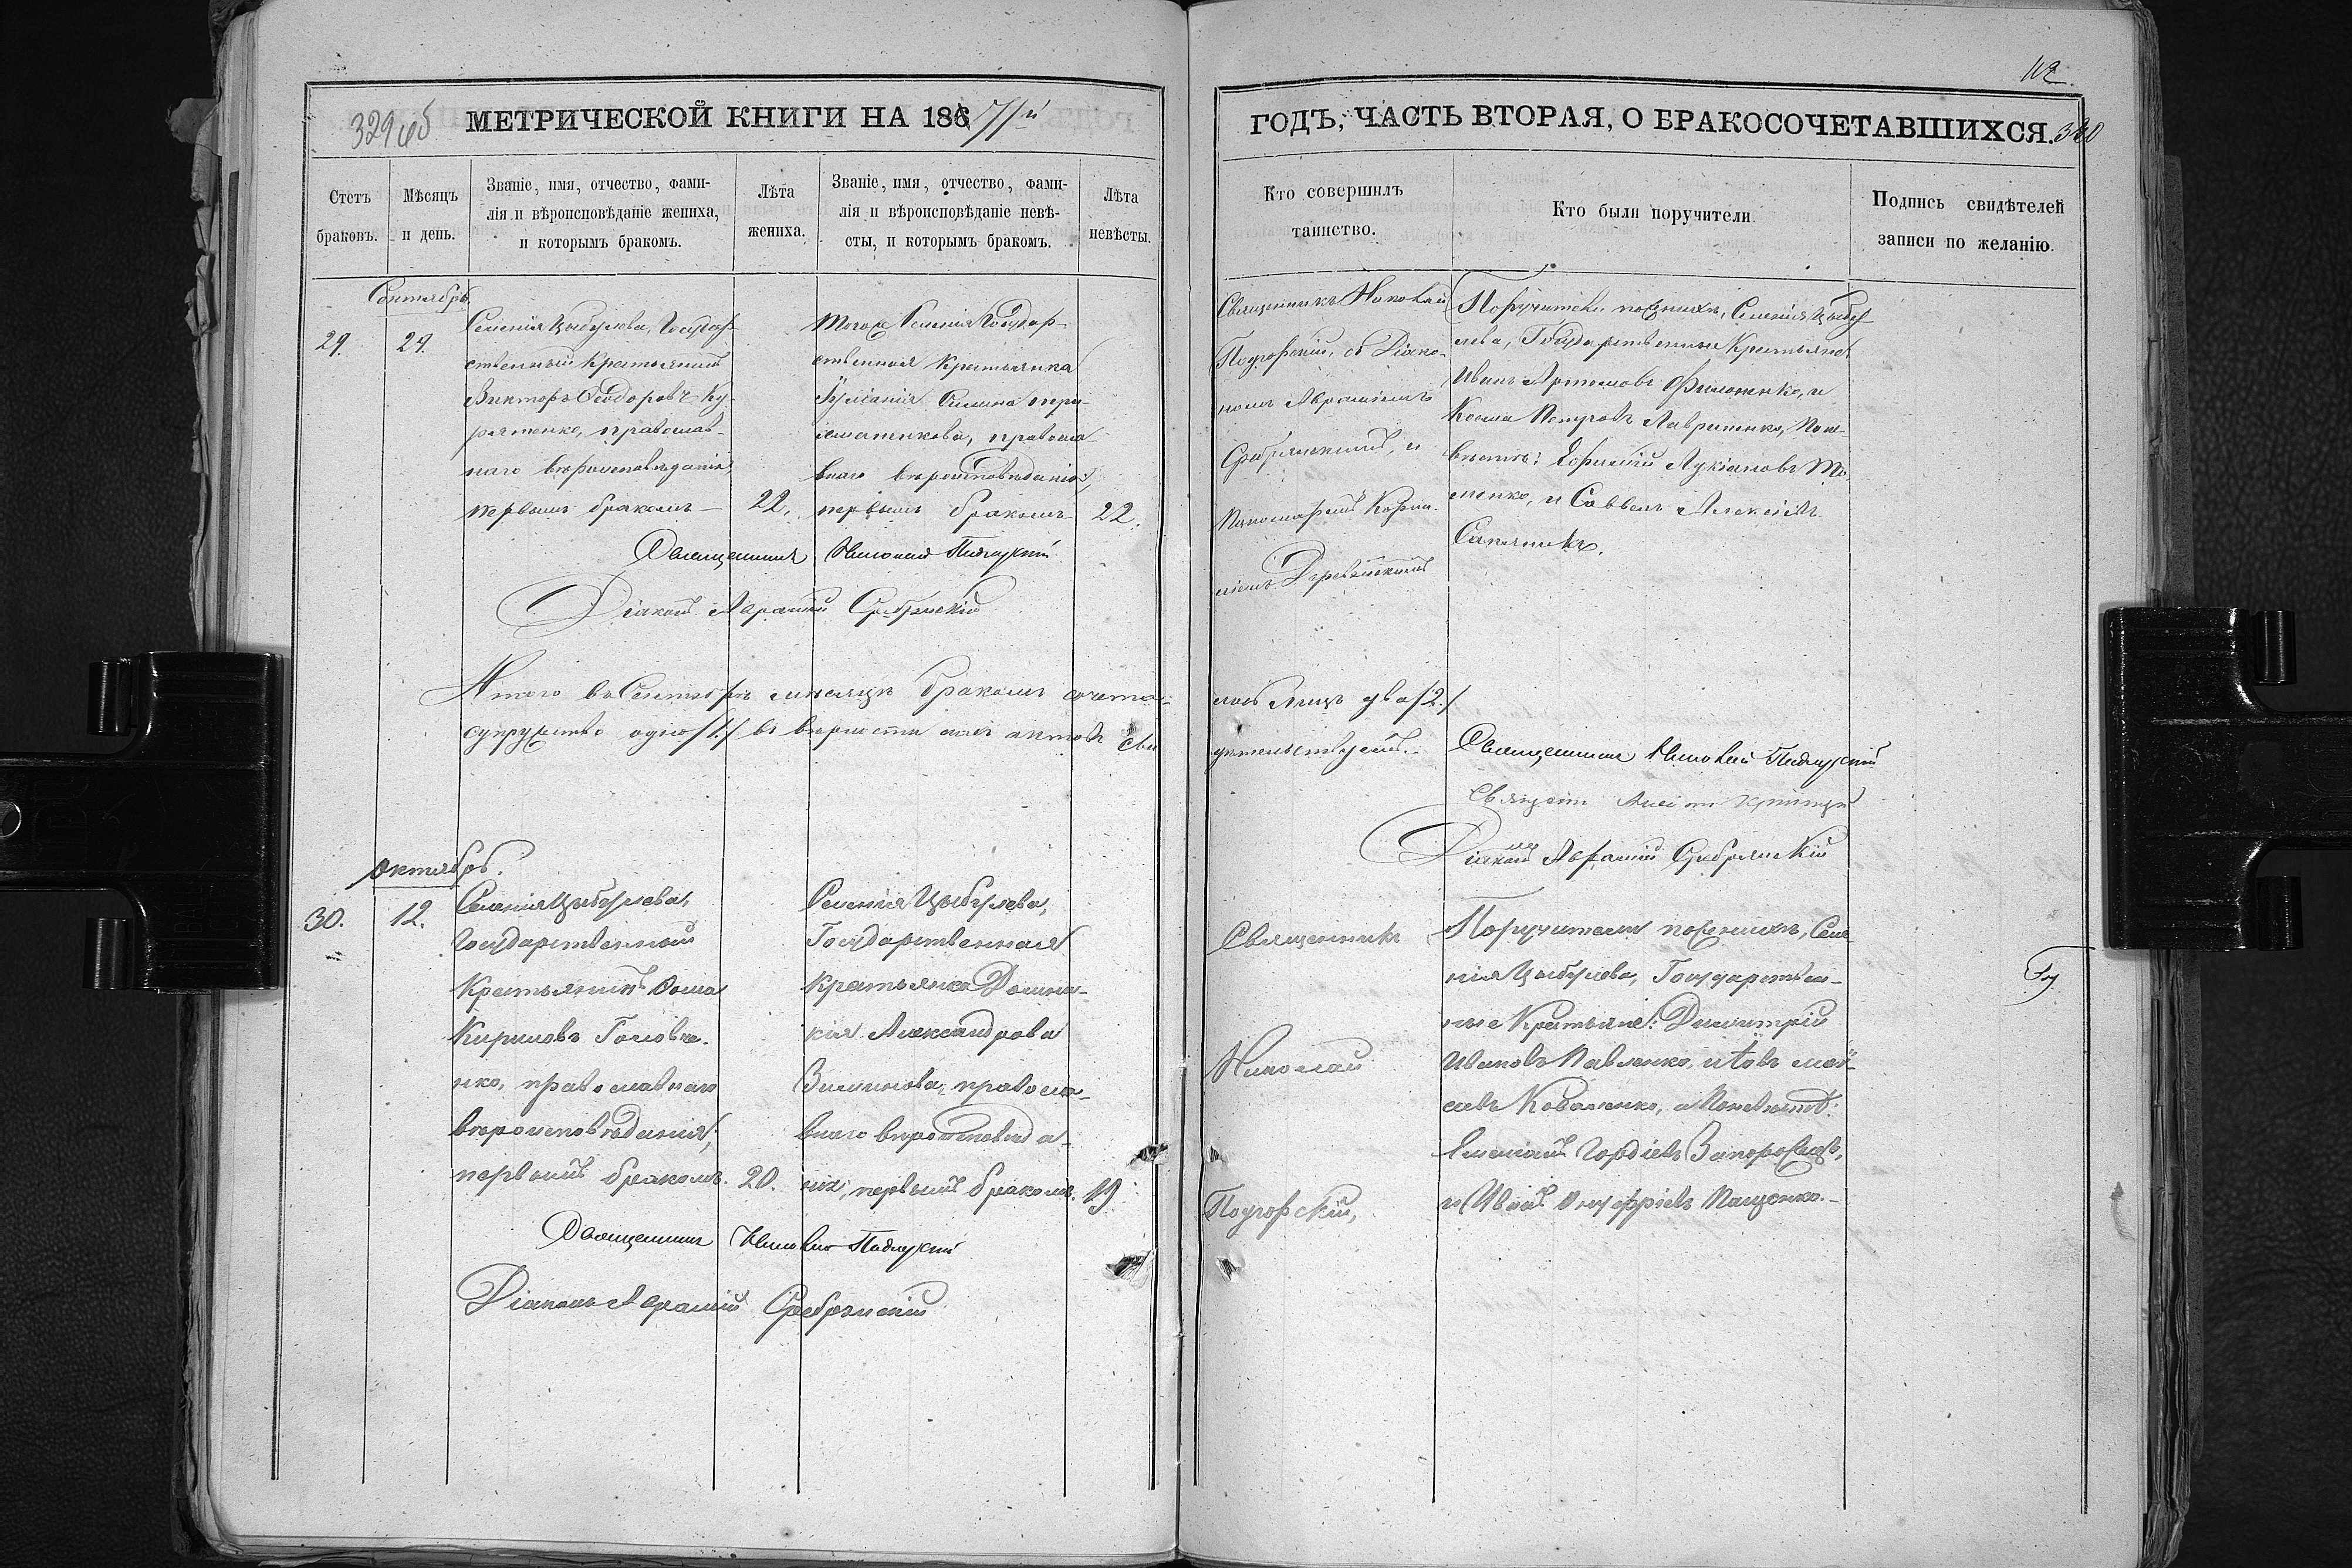 112
329 об
МЕТРИЧЕСКОЙ КНИГИ НА 1867/й
ГОДЪ, ЧАСТЬ ВТОРАЯ, О БРАКОСОЧЕТАВШИХСЯ. 330
Счетъ браковъ.
Мѣсяцъ и день.
Званіе, имя, отчество, фами-
лія и вѣроисповѣданіе жениха,
и которымъ бракомъ.
Лѣта жениха.
Званіе, имя, отчество, фами-
лія и вѣроисповѣданіе невѣ-
сты, и которымъ бракомъ.
Лѣта невѣсты.
Кто совершилъ
таинство.
Кто были поручители
Подпись свидѣтелей
записи по желанію.
Сентябрь.
29.
29.
Селенія Цыбулева, Государ-
ственный Крестьянинъ
Викторъ Ѳеодоровъ Ку-
рятенко, православ-
наго вѣроисповѣданія
первымъ бракомъ
22.
Тогож Селенія Государ-
ственная Крестьянка
Іуліанія
православ-
внаго вѣроисповѣданія,
первымъ бракомъ
22.
Священникъ Николай
Подгорскій, съ Діако-
номъ Авраміемъ
Сребрянскимъ, и
Пономаремъ Корни-
ліемъ
Поручители по женихѣ, Селенія Цыбу-
лева, Государственные Крестьяне
Иванъ Артемовъ Филоненко, и
Косма Петровъ Лавриненко, по не-
вѣстѣ: Ефимій Лукіановъ
и Саввъ Алексіевъ
Священникъ Николай Подгорскій
Діаконъ Аврамій Сребрянскій
Итого въ Сентябрѣ мѣсяцѣ бракомъ сочета-
лось лицъ два /2./
супружество одно /1./ въ вѣрности сихъ актовъ сви
дѣтельствуемъ.
Священникъ Николай Подгорскій
Діаконъ Аврамій Сребрянскій
Октябрь.
30.
12.
Селенія Цыбулева,
Государственный
Крестьянинъ Ѳома
Кириловъ Головче-
нко, православнаго
вѣроисповѣданія,
первымъ бракомъ.
20.
Селенія Цыбулева,
Государственная
Крестьянка Домни-
кія Александрова
православ-
внаго вѣроисповѣда-
нія, первымъ бракомъ.
19
Священникъ
Николай
Подгорскій,
Поручители по женихѣ, Селе-
нія Цыбулева, Государствен-
ные Крестьяне: Димитрій
Ивановъ Павленко, и Іовъ Мой-
сеевъ Коваленко, а по невѣстѣ:
Емеліанъ Гордіевъ Запорожецъ,
и Иванъ Онуфріевъ Пащенко.
Священникъ Николай Подгорскій
Діаконъ Аврамій Сребрянскій